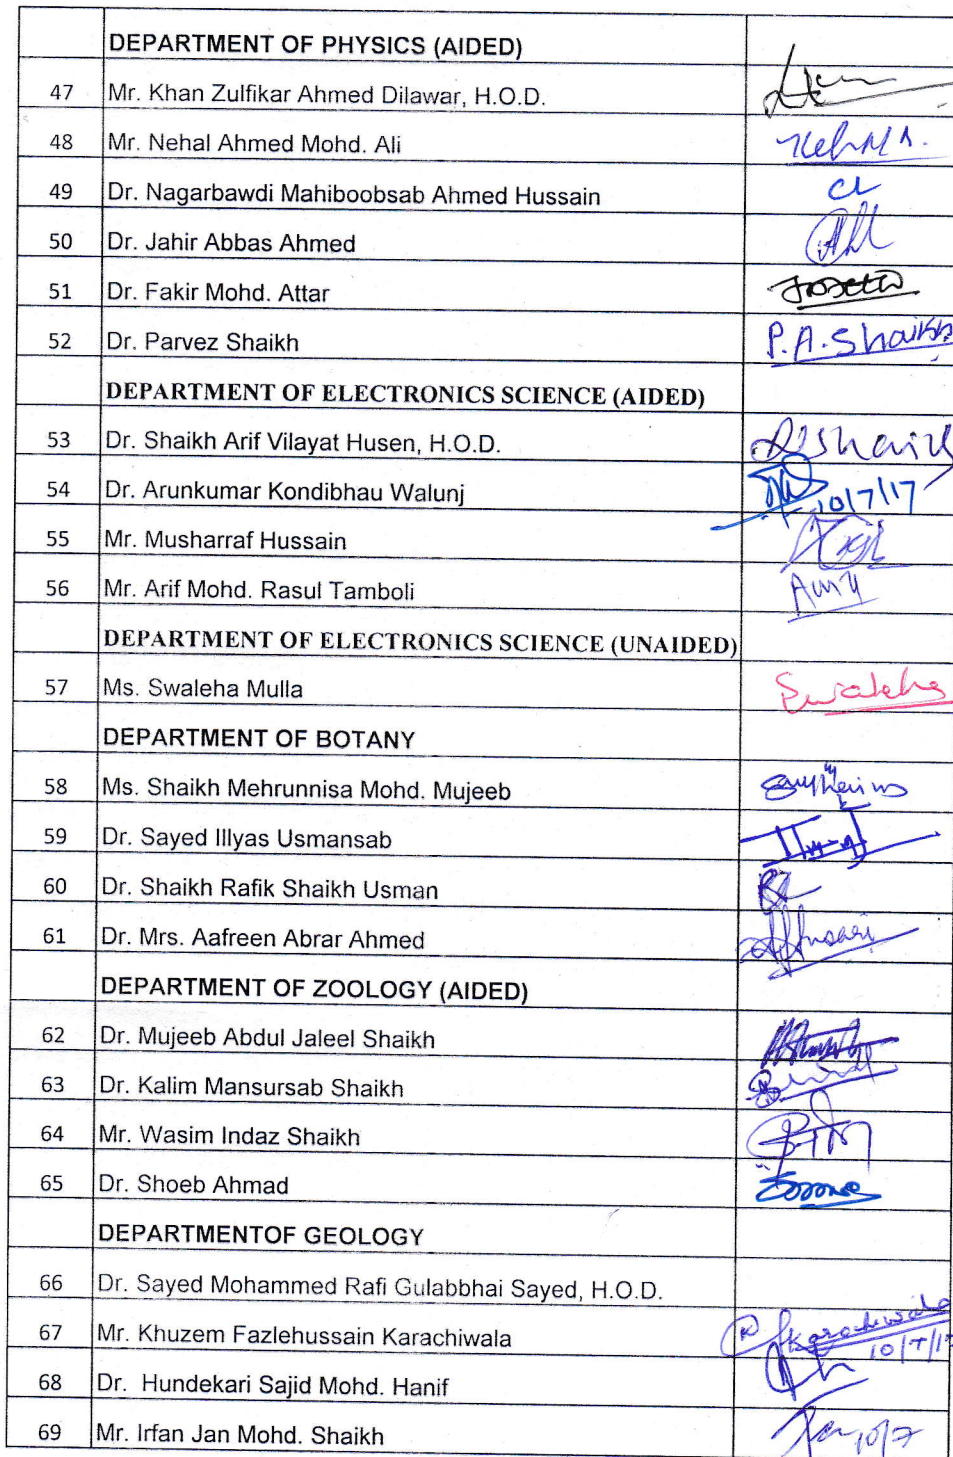 DEPARTMENT OF PHYSICS (AIDED)
47 Mr. Khan Zulfikar Ahmed Dilawar, H.O.D.
48 Mr. Nehal Ahmed Mohd. Ali
49 Dr. Nagarbawdi Mahiboobsab Ahmed Hussain CL
50 Dr. Jahir Abbas Ahmed
51 Dr. Fakir Mohd. Attar
52 Dr. Parvez Shaikh P.A.Shaikh
DEPARTMENT OF ELECTRONICS SCIENCE (AIDED)
53 Dr. Shaikh Arif Vilayat Husen, H.O.D.
54 Dr. Arunkumar Kondibhau Walunj 10/7/17
55 Mr. Musharraf Hussain
56 Mr. Arif Mohd. Rasul Tamboli
DEPARTMENT OF ELECTRONICS SCIENCE (UNAIDED)
57 Ms. Swaleha Mulla Swaleha
DEPARTMENT OF BOTANY
58 Ms. Shaikh Mehrunnisa Mohd. Mujeeb
59 Dr. Sayed Illyas Usmansab
60 Dr. Shaikh Rafik Shaikh Usman
61 Dr. Mrs. Aafreen Abrar Ahmed
DEPARTMENT OF ZOOLOGY (AIDED)
62 Dr. Mujeeb Abdul Jaleel Shaikh
63 Dr. Kalim Mansursab Shaikh
64 Mr. Wasim Indaz Shaikh
65 Dr. Shoeb Ahmad
DEPARTMENTOF GEOLOGY
66 Dr. Sayed Mohammed Rafi Gulabbhai Sayed, H.O.D.
67 Mr. Khuzem Fazlehussain Karachiwala Karachiwala
10/7/17
68 Dr. Hundekari Sajid Mohd. Hanif
69 Mr. Irfan Jan Mohd. Shaikh 10/7